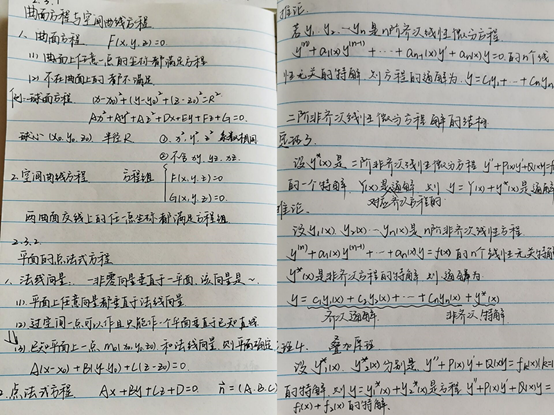 2.3.1
曲面方程与空间曲线方程
1. 曲面方程 F(x.y.z)=0
(1) 曲面上任意一点的坐标都满足方程
(2) 不在曲面上的都不满足
例: 球面方程 (x-x₀)²+(y-y₀)²+(z-z₀)²=R²
Ax²+Ay²+Az²+Dx+Ey+Fz+G=0.
球心 (x₀.y₀.z₀) 半径R ① x². y². z² 系数相同
② 不含 xy. yz. xz.
2. 空间曲线方程 方程组 F(x.y.z)=0
G(x.y.z)=0.
两曲面交线上的任一点坐标都满足方程组
2.3.2
平面的点法式方程
1. 法线向量. 一非零向量垂直于一平面. 该向量是~.
(1). 平面上任意向量都垂直于法线向量
(2). 过空间一点可以作且只能作一个平面垂直于已知直线
(3) 已知平面上一点 M₀(x₀.y₀.z₀) 和法线向量. 则平面确定
A(x-x₀)+B(y-y₀)+C(z-z₀)=0
2. 点法式方程 Ax+By+Cz+D=0 n=(A.B.C)
推论.
若y₁. y₂. …yn是n阶齐次线性微分方程
y⁽ⁿ⁾+a₁(x)y⁽ⁿ⁻¹⁾+…+an-1(x)y'+an(x)y=0.的n个线
性无关的特解. 则方程的通解为. y=C₁y₁+…+Cnyn
二阶非齐次线性微分方程解的结构
定理3.
设y*(x)是二阶非齐次线性微分方程 y''+P(x)y'+Q(x)y=f
的一个特解. Y(x)是通解. 则 y=Y(x)+y*(x)是通解
对应齐次方程的
推论.
设y₁(x). y₂(x)…yn(x)是n阶非齐次线性方程
y⁽ⁿ⁾+a₁(x)y⁽ⁿ⁻¹⁾+…+an(x)y=f(x)的n个线性无关特解
y*(x)是非齐次方程的特解. 则通解为
y=C₁y₁(x)+C₂y₂(x)+…+Cnyn(x)+y*(x)
齐次通解. 非齐次特解.
定理4. 叠加原理
设y₁*(x). y₂*(x)分别是 y''+P(x)y'+Q(x)y=fk(x)(k=1
的特解. 则 y=y₁*(x)+y₂*(x)是方程 y''+P(x)y'+Q(x)y=
f₁(x)+f₂(x)的特解.